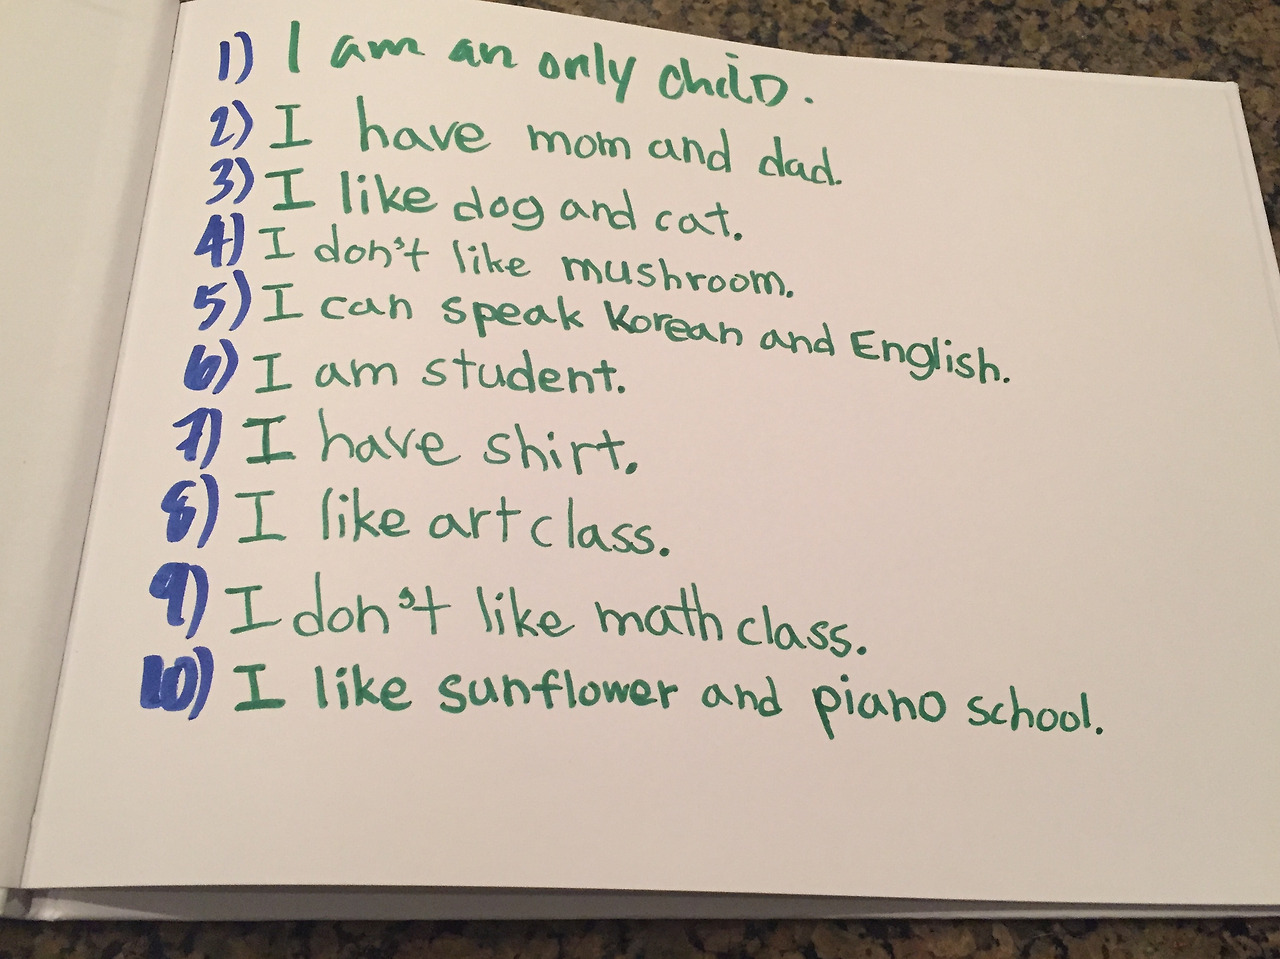 1) I am an only chilD.
2) I have mom and dad.
3) I like dog and cat.
4) I don't like mushroom.
5) I can speak Korean and English.
6) I am student.
7) I have shirt.
8) I like art class.
9) I don't like math class.
10) I like sunflower and piano school.